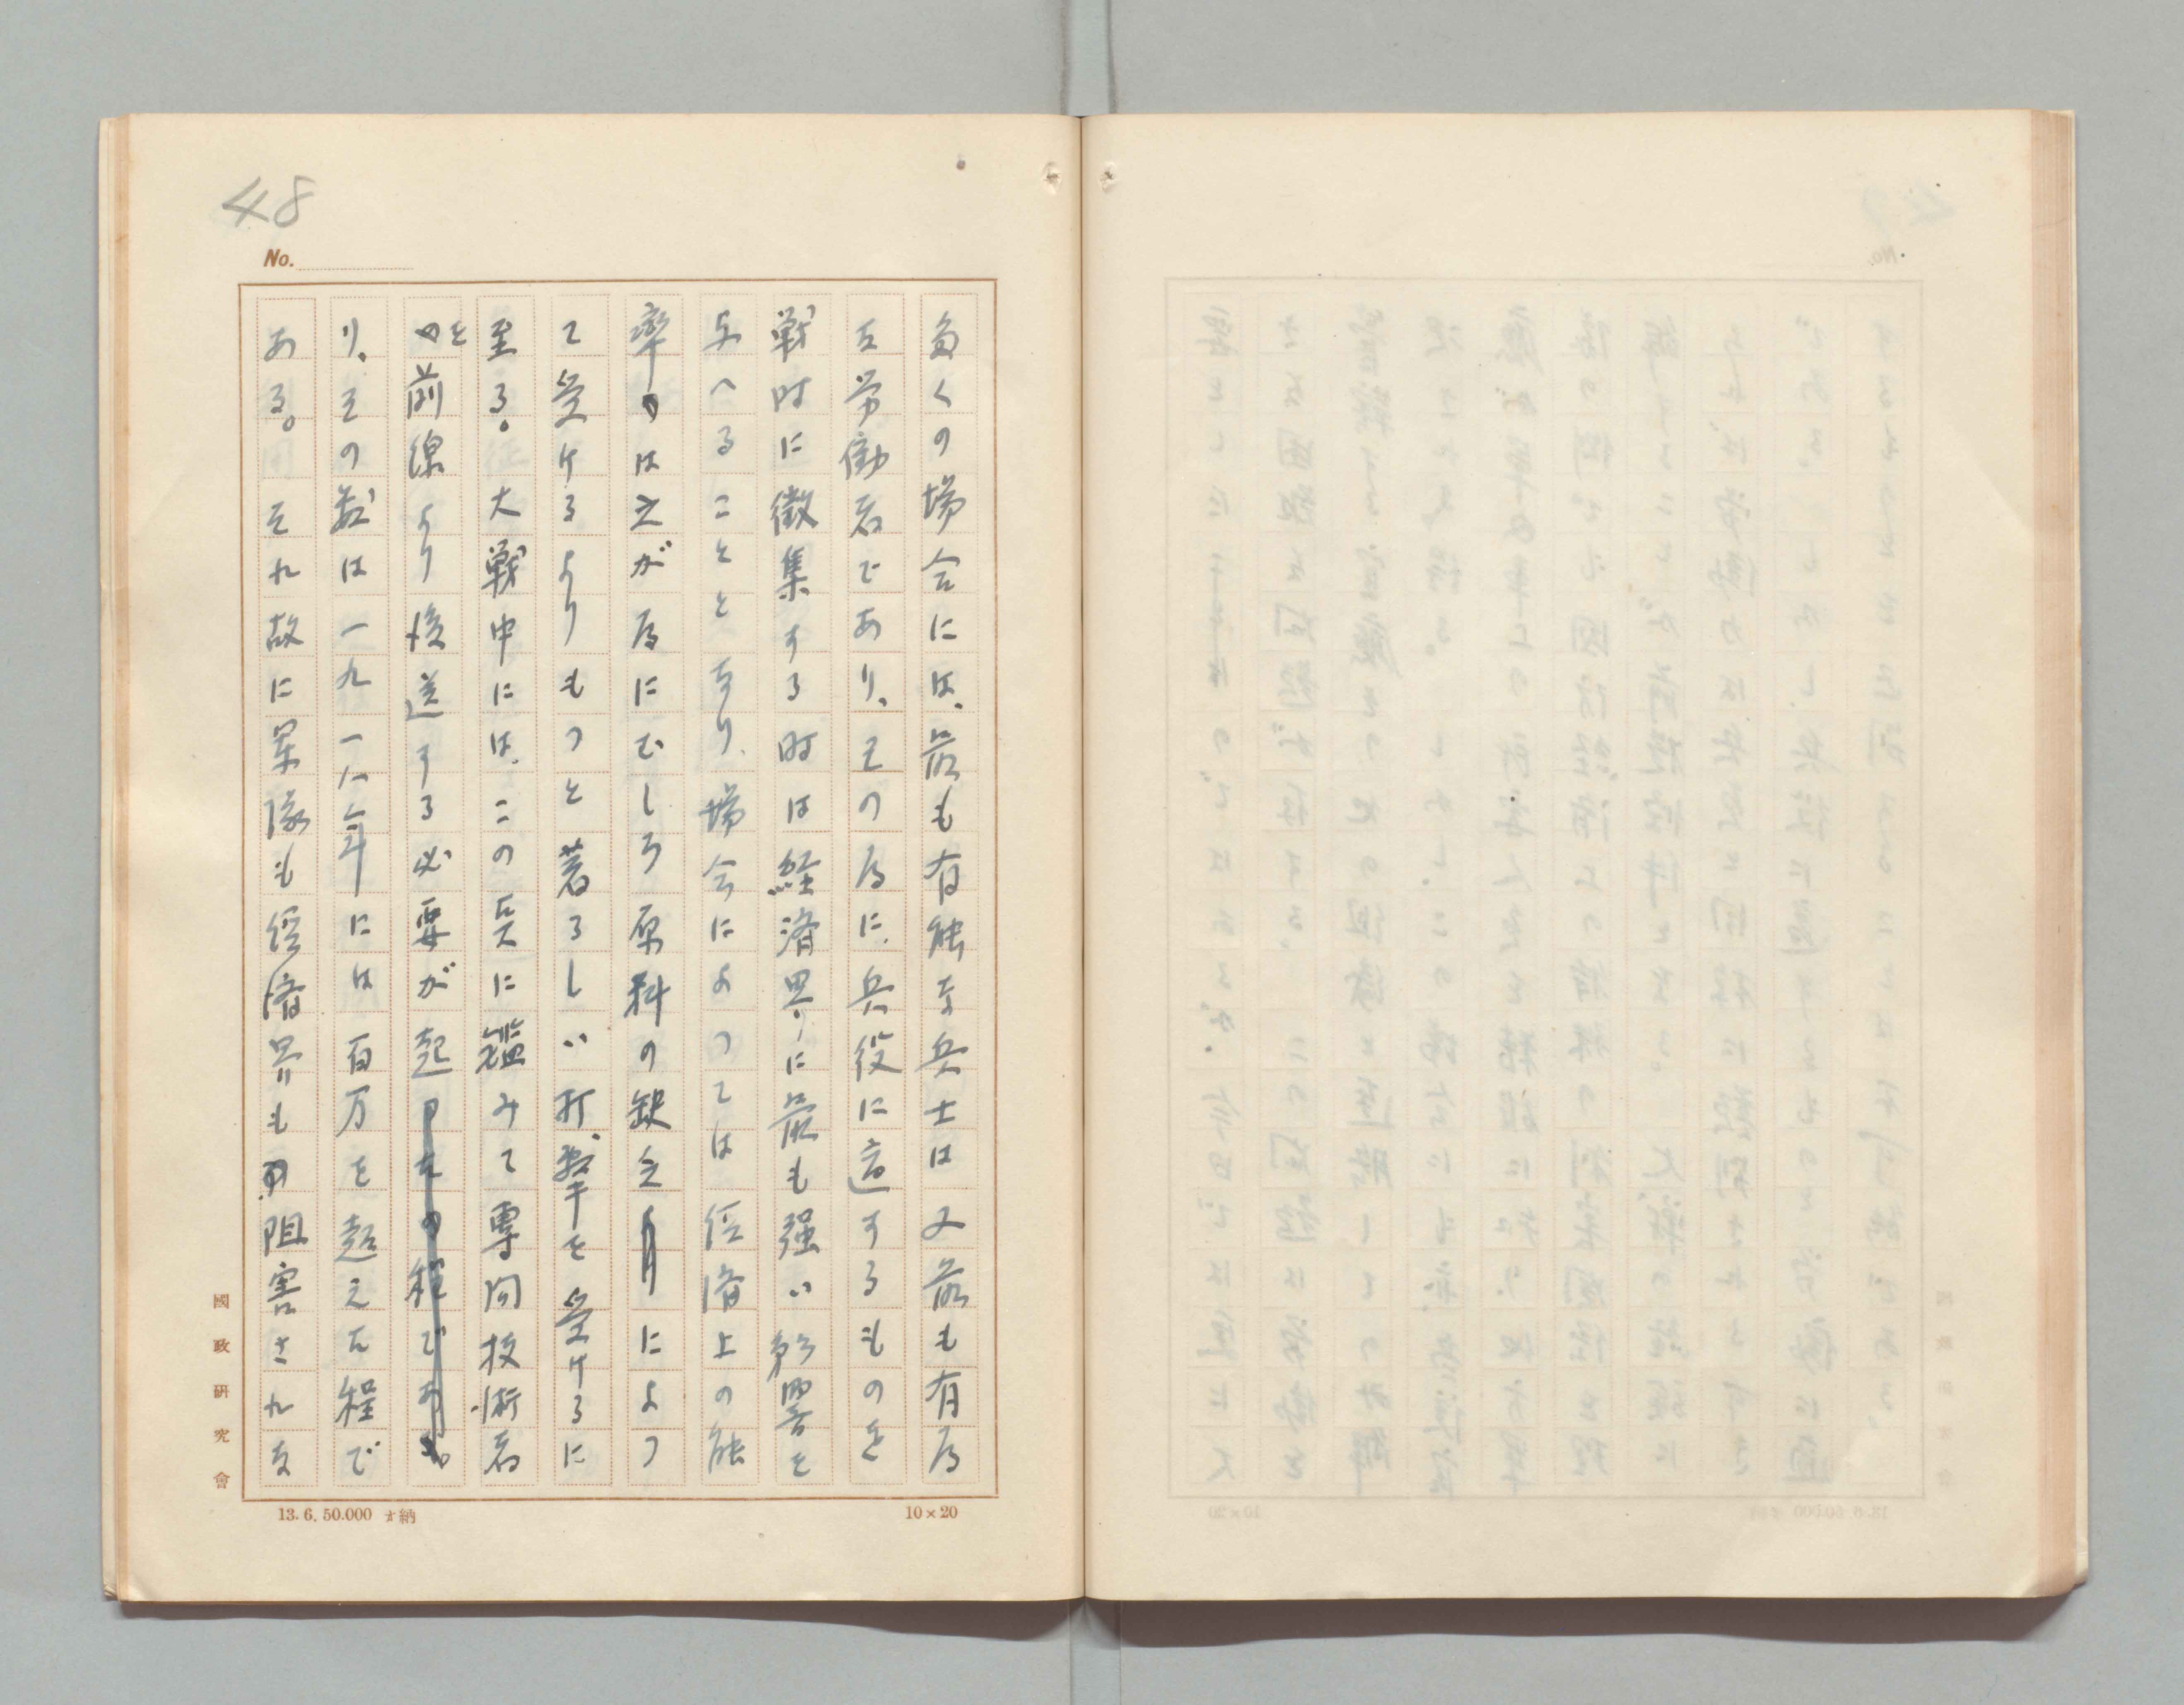 48
No.
多くの場合には、最も有能な兵士は又最も有為
な労働者であり、その為に、兵役に適するものを
戦時に徴集する時は経済界に最も強い影響を
与へることとなり、場合によつては経済上の能
率のは之が為にむしろ原料の缺乏によつ
て受けるよりもつと著るしい打撃を受けるに
至る。大戦中には、この点に鑑みて専門技術者
を前線より後送する必要が起
り、その数は一九一八年には百万を超えた程で
ある。それ故に軍隊も経済界も阻害されな
國政研究會
13. 6. 50.000 納
10×20